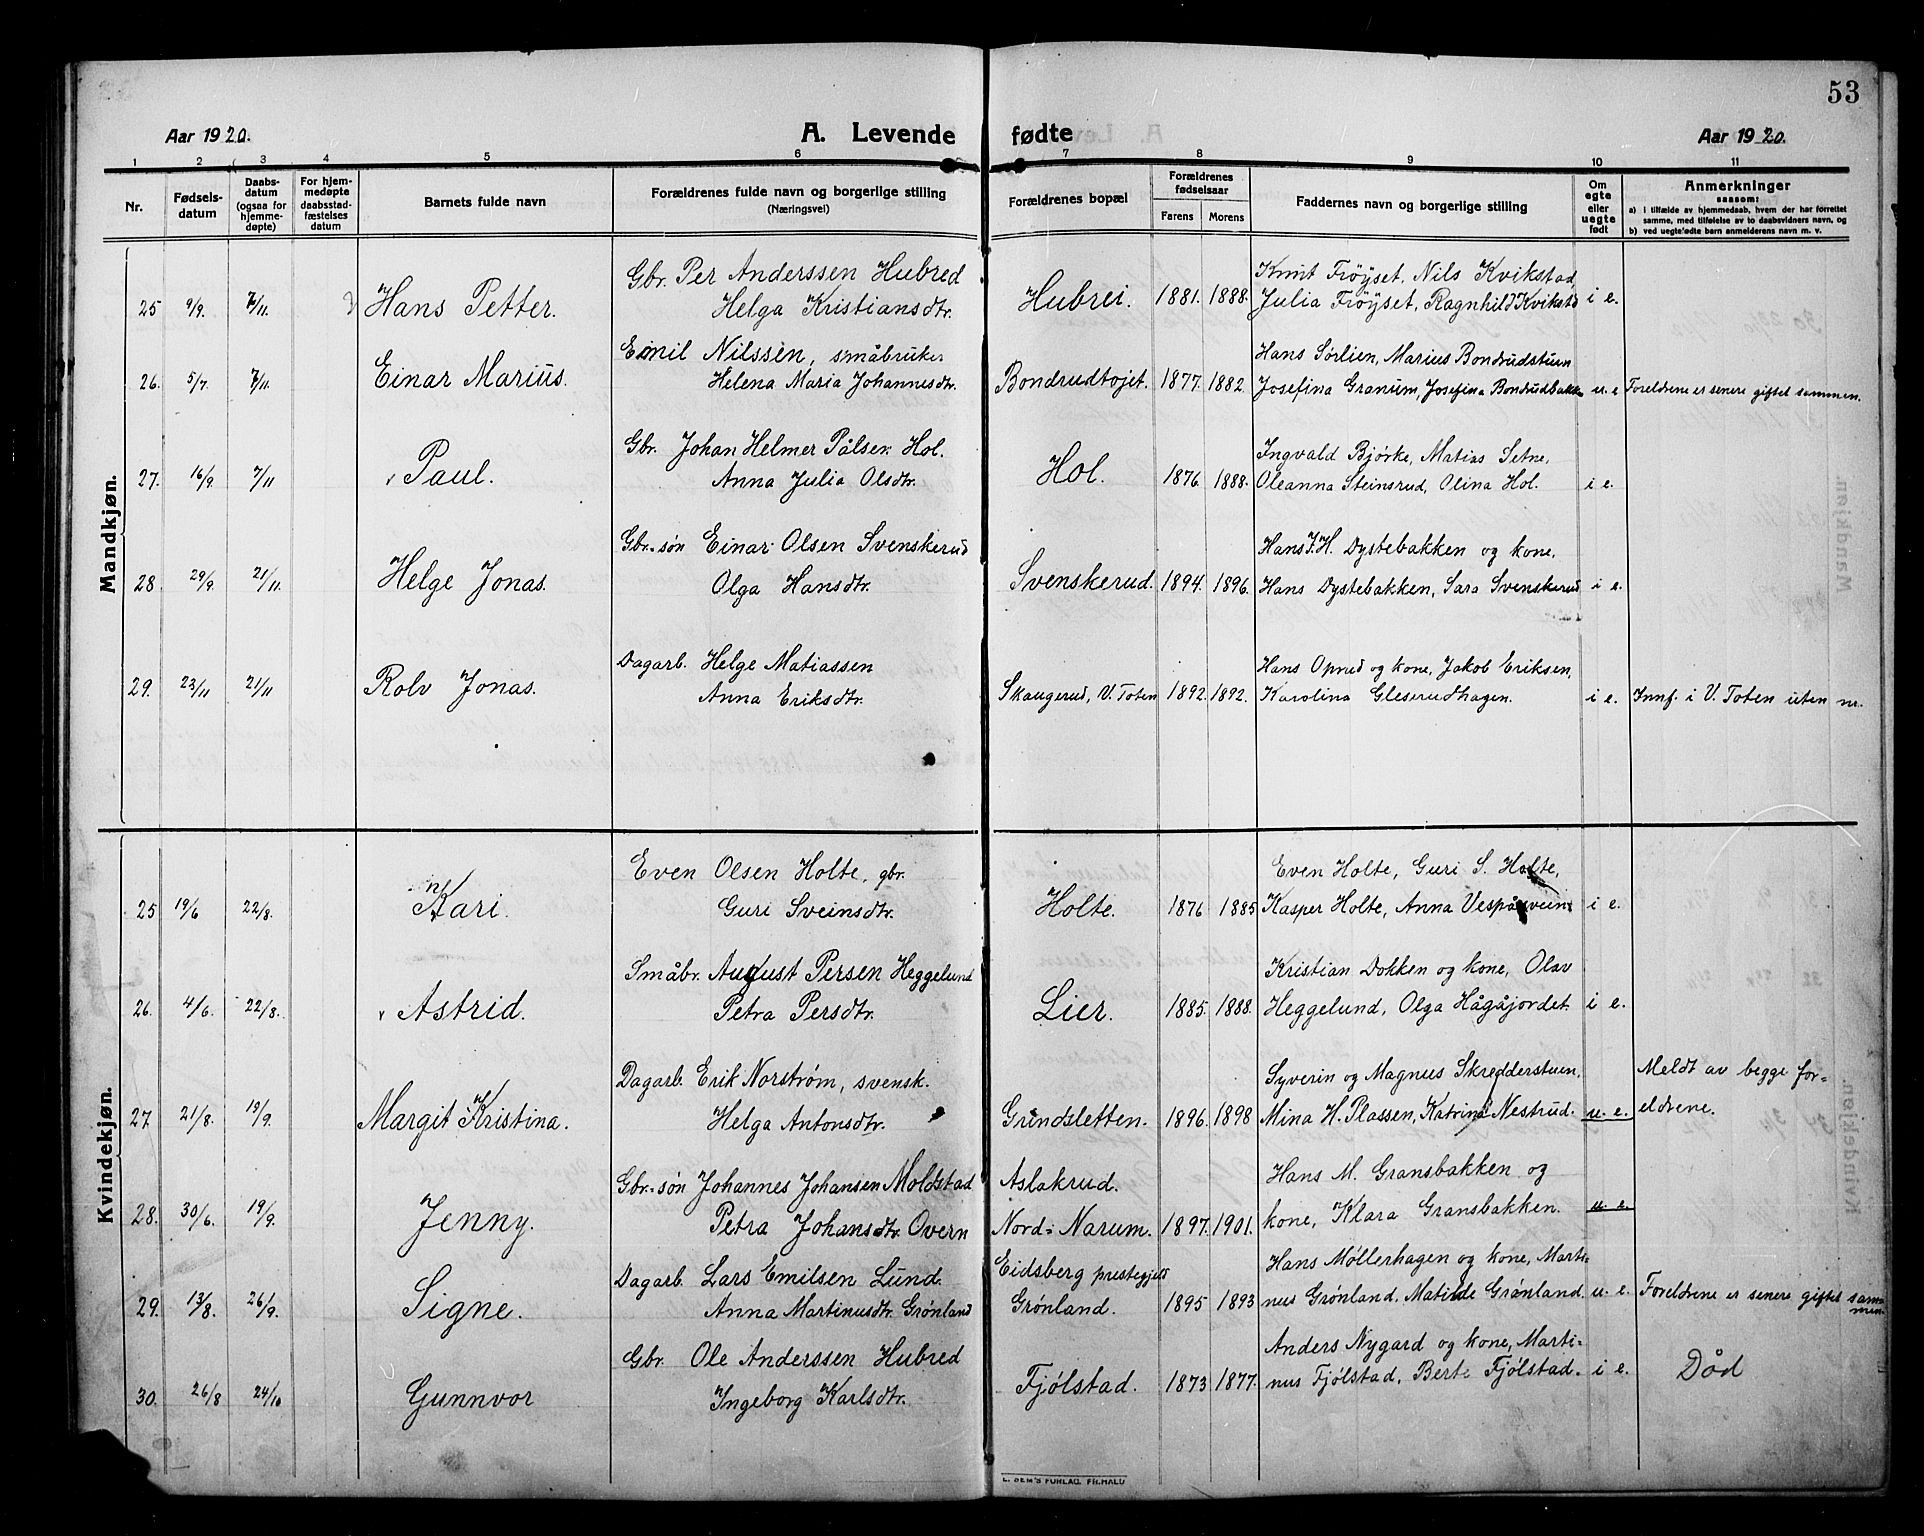 53
Aar 1920.
A. Levende fødte
Aar 1920.
1 2 3 4 5 6 7 8 9 10 11
Nr.
Fødsels-
datum
Daabs-
datum
(ogsaa for
hjemme-
døpte)
For hjem-
medøpte
daabsstad-
fæstelses
datum
Barnets fulde navn
Forældrenes fulde navn og borgerlige stilling
(Næringsvei)
Forældrenes bopæl
Forældrenes
fødselsaar
Farens Morens
Faddernes navn og borgerlige stilling
Om
egte
eller
uegte
født
Anmerkninger
saasom:
a) i tilfælde av hjemmedaab, hvem der har forrettet
samme, med tilføielse av to daabsvidners navn, og
b) ved uegtefødte barn anmelderens navn m. v.
Mandkjøn.
Gbr. Per Anderssen Hubred Knut Frøyset, Nils Kvikstad,
25 9/9. 7/11. Hans Petter. Helga Kristiansdtr. Hubrei. 1881. 1888. Julia Frøyset, Ragnhild Kvikstd i e.
Emil Nilssen, småbruker Hans Sørlien, Marius Bondrudstuen
26. 5/7. 7/11. Einar Marius. Helena Maria Johannesdtr. Bondrudtojet. 1877. 1882. Josefina Granum, Josefina Bondrudbakk u. e Foreldrene er senere giftet sammen.
Gbr. Johan Helmer Pålsen Hol. Ingvald Bjørke, Matias Setne,
27. 16/9. 7/11 Paul. Anna Julia Olsdtr. Hol. 1876. 1888. Oleanna Steinsrud, Olina Hol. i e.
Gbr.-søn Einar Olsen Svenskerud Hans J. H. Dystebakken og kone,
28. 29/9. 21/11. Helge Jonas. Olga Hansdtr. Svenskerud. 1894. 1896. Hans Dystebakken, Sara Svenskerud i e.
Dagarb. Helge Matiassen Hans Oprud og kone, Jakob Eriksen,
29. 23/11 21/11 Rolv Jonas. Anna Eriksdtr. Skaugerud, V. Toten 1892. 1892. Karolina Gleserudhagen. i e. Innf. i V. Toten uten nr.
Kvindekjøn.
Even Olsen Holte, gbr. Even Holte, Guri S. Holte,
25 19/6 22/8. Kari. Guri Sveinsdtr. Holte. 1876 1885 Kasper Holte, Anna i e.
Småbr. August Persen Heggelund Kristian Dokken og kone, Olav
26. 4/6. 22/8. Astrid. Petra Persdtr. Lier. 1885. 1888. Heggelund, Olga Hågåjordet. i e.
Dagarb. Erik Norstrøm, svensk. Syverin og Magnus Skredderstuen, Meldt av begge for-
27 21/8. 19/9. Margit Kristina. Helga Antonsdtr. Grindsletten. 1896. 1898 Mina H. Plassen, Katrina Nestrud. u. e. eldrene.
Gbr.-søn Johannes Johansen Moldstad Aslakrud. Hans M. Gransbakken og
28. 30/6. 19/9. Jenny. Petra Johansdtr. Overn Nord-Narum. 1897. 1901. kone, Klara Gransbakken. u. e.
Dagarb. Lars Emilsen Lund. Eidsberg prestegjeld Hans Møllerhagen og kone, Marti-
29. 13/8. 26/9. Signe. Anna Martinusdtr. Grønland Grønland. 1895 1893 nus Grønland, Matilde Grønland. u. e. Foreldrene er senere giftet sam-
men.
Gbr. Ole Anderssen Hubred Anders Nygard og kone, Marti-
30. 26/8 24/10 Gunnvor Ingeborg Karlsdtr. Fjølstad. 1873 1877. nus Fjølstad, Berte Fjølstad. i e. Død